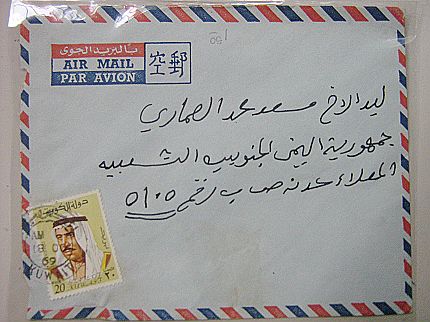 بالبريد الجوى
AIR MAIL
PAR AVION
空郵
ليد الاخ مسعد محمد العماري
جمهورية اليمن الجنوبية الشعبيه
المعلاء عدنه ص ب رقم ٥١٠٥
دولة الكويت
20 ٢٠
KUWAIT
69